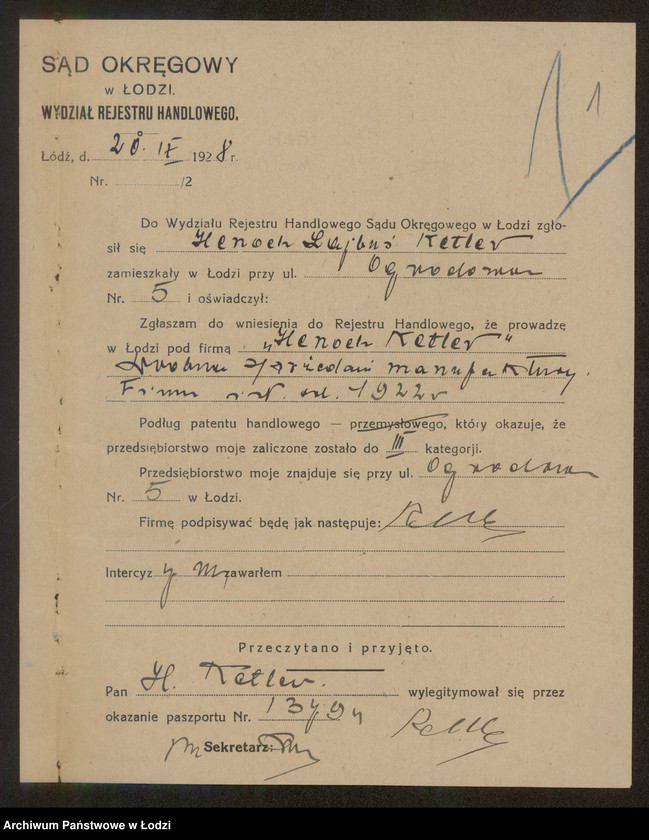 SĄD OKRĘGOWY
w ŁODZI.
WYDZIAŁ REJESTRU HANDLOWEGO.
1
Łódź, d. 20. IX 1928 r.
Nr. /2
Do Wydziału Rejestru Handlowego Sądu Okręgowego w Łodzi zgło-
sił się Henoch Lajbuś Ketler
zamieszkały w Łodzi przy ul. Ogrodowa
Nr. 5 i oświadczył:
Zgłaszam do wniesienia do Rejestru Handlowego, że prowadzę
w Łodzi pod firmą „Henoch Ketler"
manufaktury.
Firma od. 1922 r
Podług patentu handlowego — przemysłowego, który okazuje, że
przedsiębiorstwo moje zaliczone zostało do III kategorji.
Przedsiębiorstwo moje znajduje się przy ul. Ogrodowa
Nr. 5 w Łodzi.
Firmę podpisywać będę jak następuje:
Intercyzy zawarłem
Przeczytano i przyjęto.
Pan H. Ketler. wylegitymował się przez
okazanie paszportu Nr.
Sekretarz:
Archiwum Państwowe w Łodzi